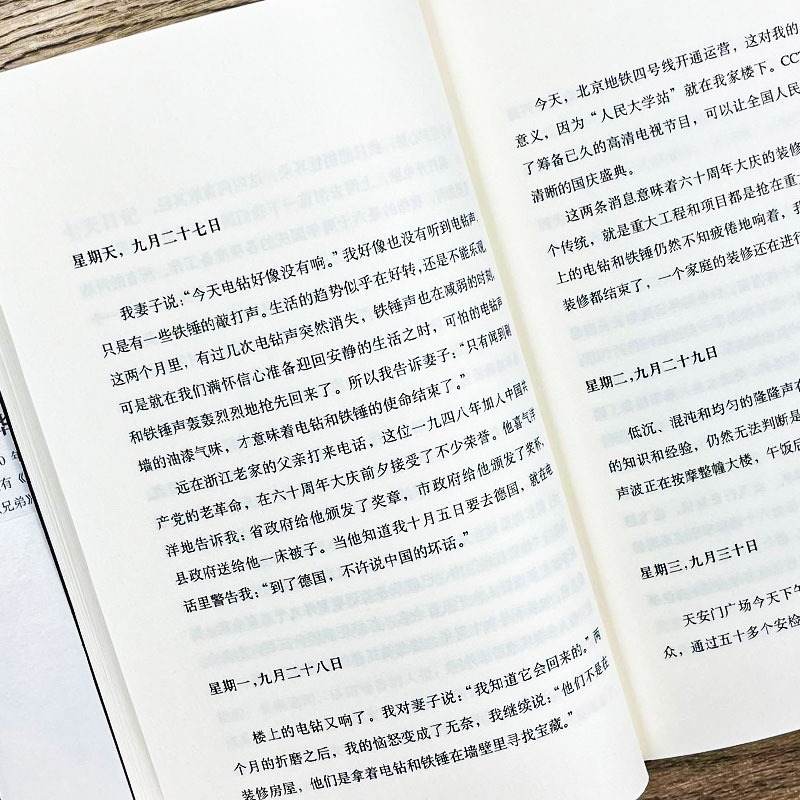 星期天，九月二十七日
我妻子说：“今天电钻好像没有响。”我好像也没有听到电钻声，
只是有一些铁锤的敲打声。生活的趋势似乎在好转，还是不能乐观，
这两个月里，有过几次电钻声突然消失，铁锤声也在减弱的时刻，
可是就在我们满怀信心准备迎回安静的生活之时，可怕的电钻声
和铁锤声轰轰烈烈地抢先回来了。所以我告诉妻子：“只有闻到刷
墙的油漆气味，才意味着电钻和铁锤的使命结束了。”
远在浙江老家的父亲打来电话，这位一九四八年加入中国共
产党的老革命，在六十周年大庆前夕接受了不少荣誉。他喜气洋
洋地告诉我：省政府给他颁发了奖章，市政府给他颁发了奖杯，
县政府送给他一床被子。当他知道我十月五日要去德国，就在电
话里警告我：“到了德国，不许说中国的坏话。”
星期一，九月二十八日
楼上的电钻又响了。我对妻子说：“我知道它会回来的。”两
个月的折磨之后，我的恼怒变成了无奈，我继续说：“他们不是在
装修房屋，他们是拿着电钻和铁锤在墙壁里寻找宝藏。”
今天，北京地铁四号线开通运营，这对我的
意义，因为“人民大学站”就在我家楼下。CC
了筹备已久的高清电视节目，可以让全国人民
清晰的国庆盛典。
这两条消息意味着六十周年大庆的装修
个传统，就是重大工程和项目都是抢在重大
上的电钻和铁锤仍然不知疲倦地响着，我
装修都结束了，一个家庭的装修还在进行
星期二，九月二十九日
低沉、混沌和均匀的隆隆声在
的知识和经验，仍然无法判断是
声波正在按摩整幢大楼，午饭后
星期三，九月三十日
天安门广场今天下午
众，通过五十多个安检
0 年
有《
兄弟》